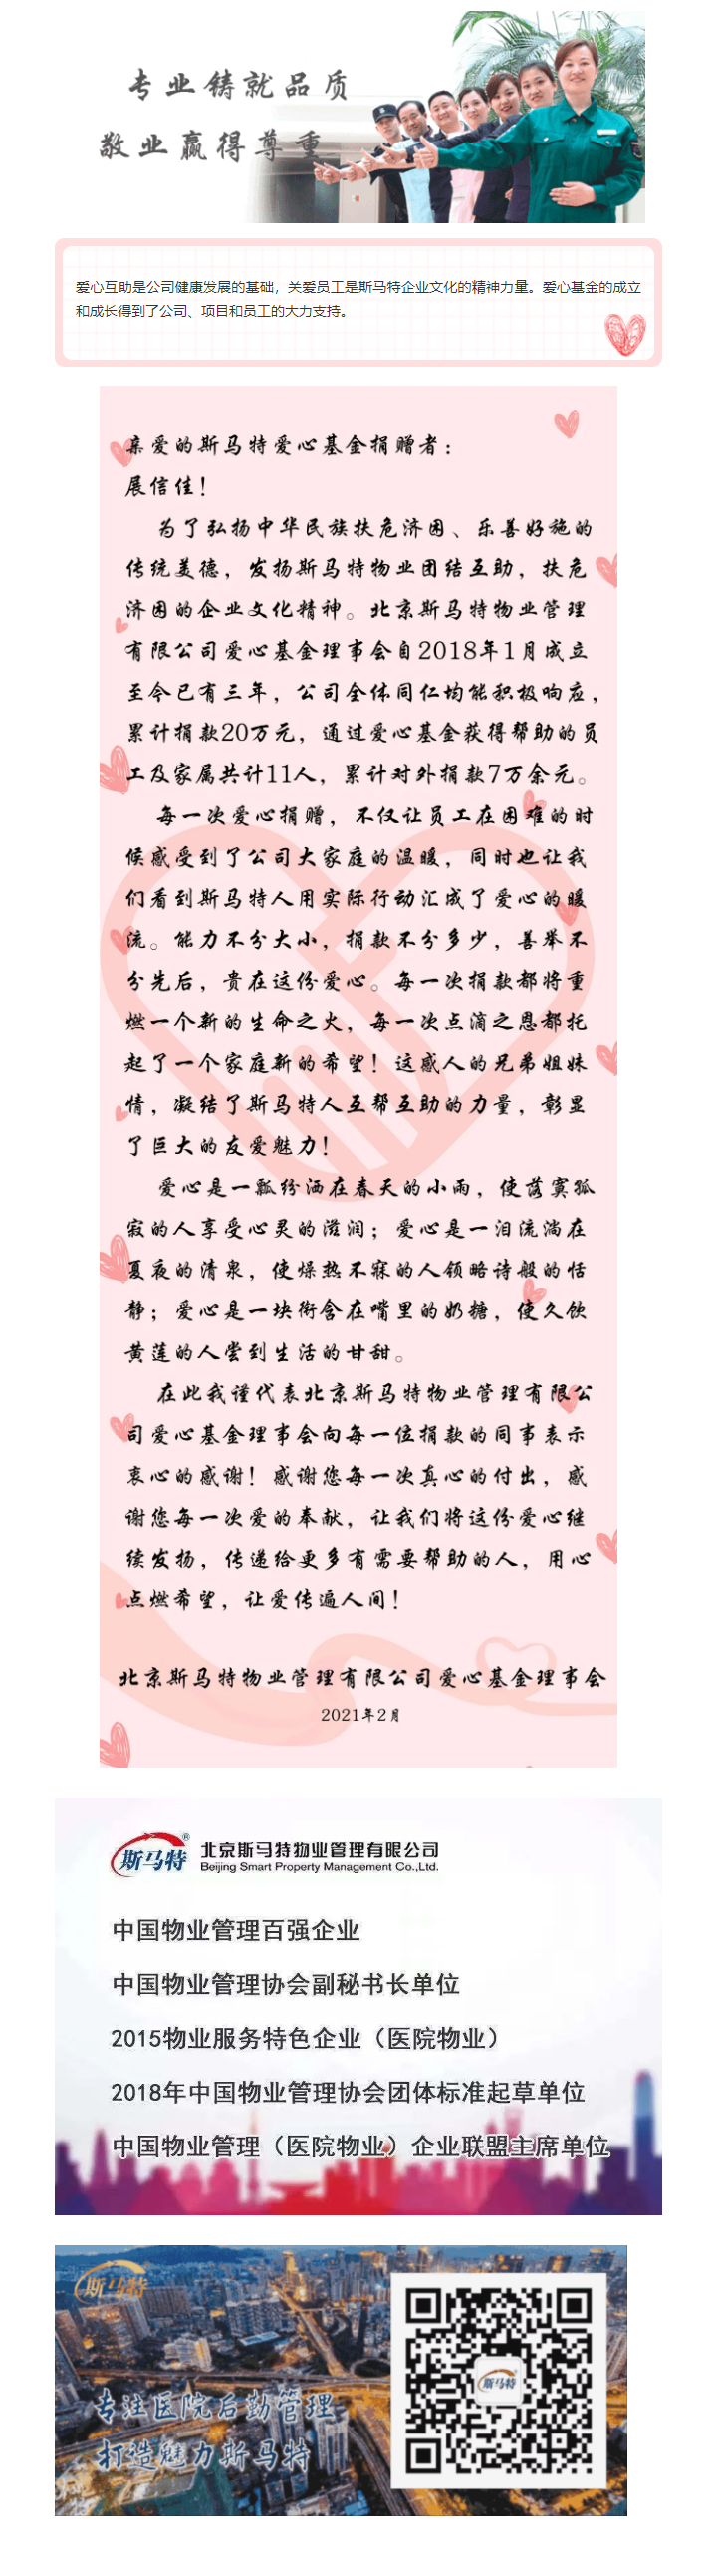 专业铸就品质
敬业赢得尊重
爱心互助是公司健康发展的基础，关爱员工是斯马特企业文化的精神力量。爱心基金的成立
和成长得到了公司、项目和员工的大力支持。
亲爱的斯马特爱心基金捐赠者：
展信佳！
为了弘扬中华民族扶危济困、乐善好施的
传统美德，发扬斯马特物业团结互助，扶危
济困的企业文化精神。北京斯马特物业管理
有限公司爱心基金理事会自2018年1月成立
至今已有三年，公司全体同仁均能积极响应，
累计捐款20万元，通过爱心基金获得帮助的员
工及家属共计11人，累计对外捐款7万余元。
每一次爱心捐赠，不仅让员工在困难的时
候感受到了公司大家庭的温暖，同时也让我
们看到斯马特人用实际行动汇成了爱心的暖
流。能力不分大小，捐款不分多少，善举不
分先后，贵在这份爱心。每一次捐款都将重
燃一个新的生命之火，每一次点滴之恩都托
起了一个家庭新的希望！这感人的兄弟姐妹
情，凝结了斯马特人互帮互助的力量，彰显
了巨大的友爱魅力！
爱心是一瓢纷洒在春天的小雨，使落寞孤
寂的人享受心灵的滋润；爱心是一泊流淌在
夏夜的清泉，使燥热不寐的人领略诗般的恬
静；爱心是一块衔含在嘴里的奶糖，使久饮
黄莲的人尝到生活的甘甜。
在此我谨代表北京斯马特物业管理有限公
司爱心基金理事会向每一位捐款的同事表示
衷心的感谢！感谢您每一次真心的付出，感
谢您每一次爱的奉献，让我们将这份爱心继
续发扬，传递给更多有需要帮助的人，用心
点燃希望，让爱传遍人间！
北京斯马特物业管理有限公司爱心基金理事会
2021年2月
斯马特® 北京斯马特物业管理有限公司
Beijing Smart Property Management Co.,Ltd.
中国物业管理百强企业
中国物业管理协会副秘书长单位
2015物业服务特色企业（医院物业）
2018年中国物业管理协会团体标准起草单位
中国物业管理（医院物业）企业联盟主席单位
斯马特
专注医院后勤管理
打造魅力斯马特
斯马特